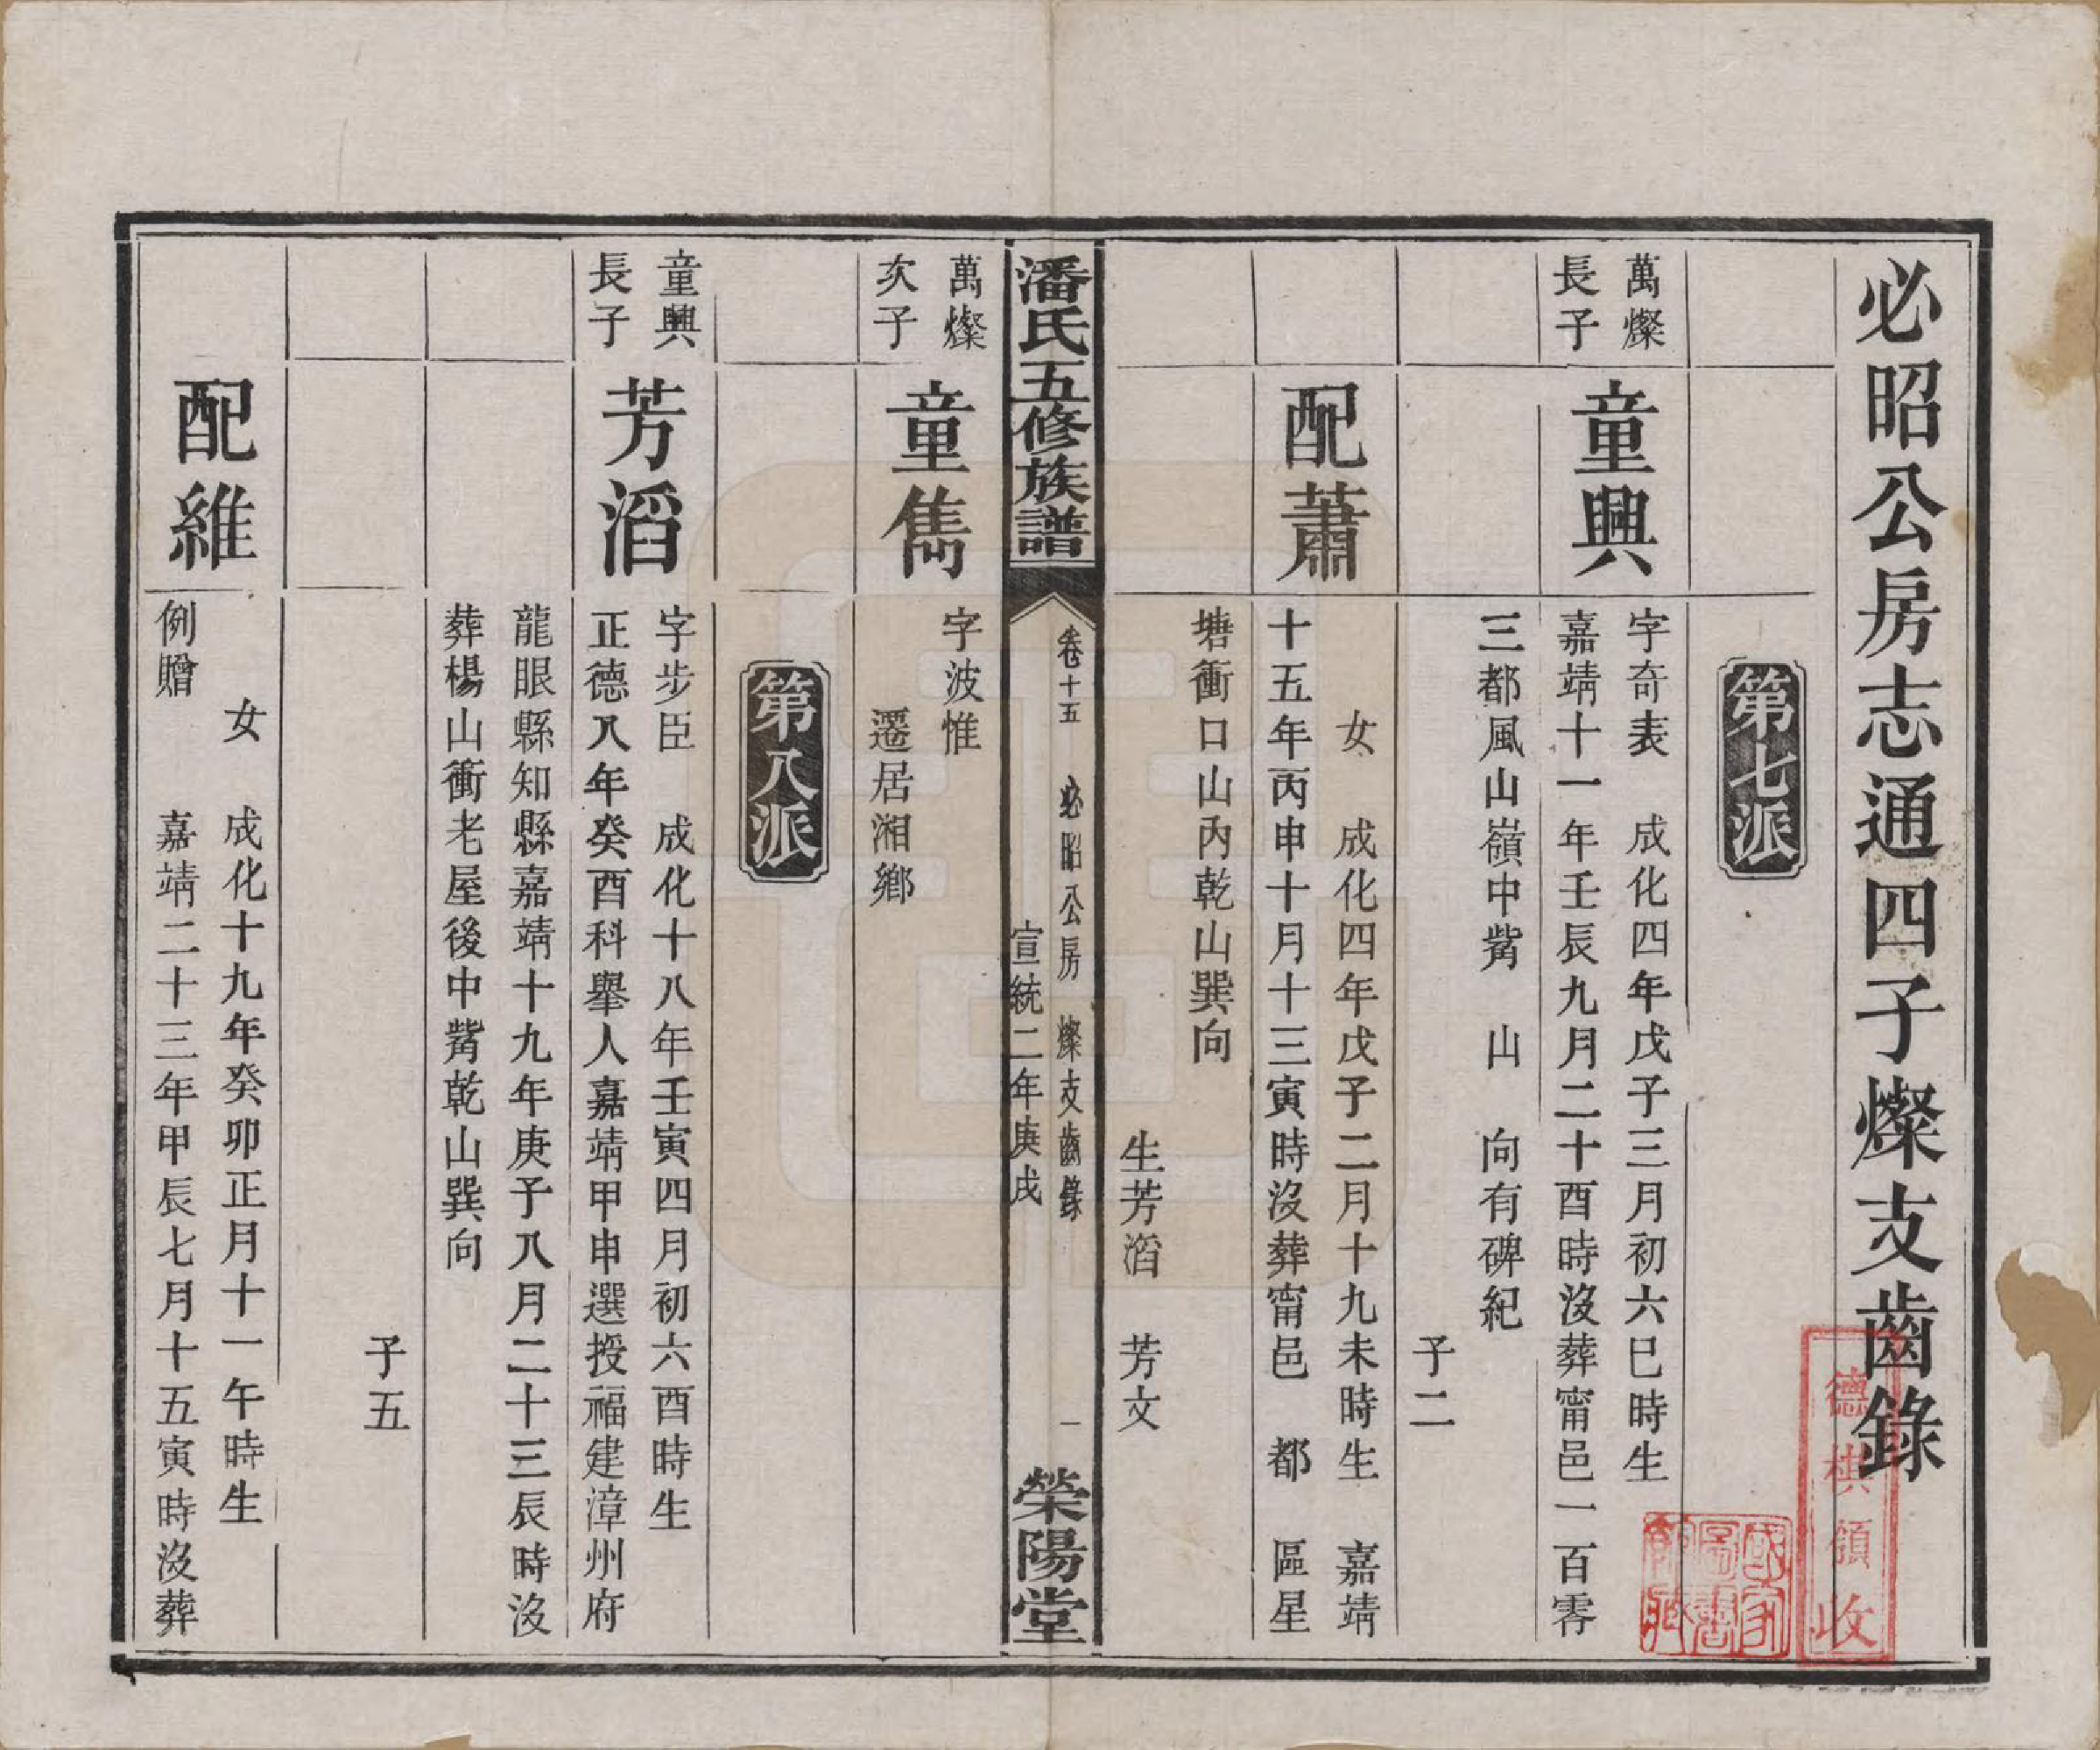 必昭公房志通四子燦支齒錄
第七派
萬燦
長子
童興
字奇表　成化四年戊子三月初六巳時生
嘉靖十一年壬辰九月二十酉時沒葬甯邑一百零
三都風山嶺中觜　山　向有碑紀
子二
配蕭
女　成化四年戊子二月十九未時生　嘉靖
十五年丙申十月十三寅時沒葬甯邑　都　區星
塘衝口山內乾山巽向
生芳滔　芳文
潘氏五修族譜
卷十五　必昭公房　燦支齒錄　一
宣統二年庚戌
榮陽堂
萬燦
次子
童雋
字波惟
遷居湘鄉
第八派
童興
長子
芳滔
字步臣　成化十八年壬寅四月初六酉時生
正德八年癸酉科舉人嘉靖甲申選授福建漳州府
龍眼縣知縣嘉靖十九年庚子八月二十三辰時沒
葬楊山衝老屋後中觜乾山巽向
子五
配維
女　成化十九年癸卯正月十一午時生
例贈　嘉靖二十三年甲辰七月十五寅時沒葬
德棋領收
國家圖書館藏